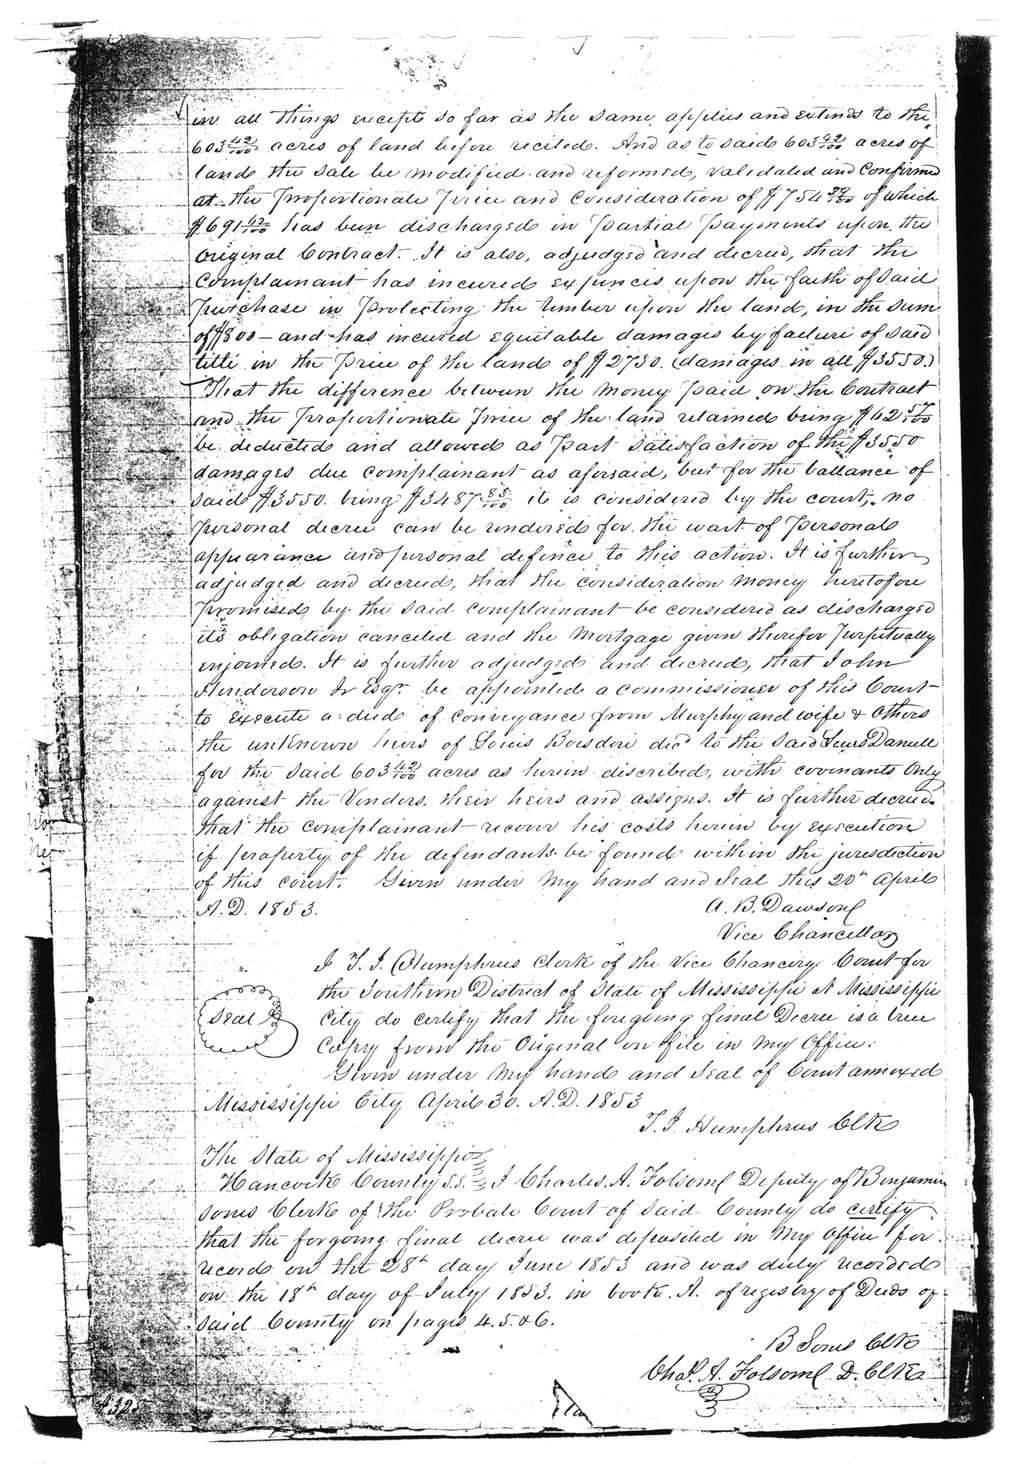 in all things excepts so far as the same applies and extends to the
603 42/100 acres of land before recited. And as to said 603 42/100 acres of
land the sale be modified and reformed, validated and confirmed
at the proportionate price and consideration of $754 29/100 of which
$691 42/100 has been discharged in partial payments upon the
Original Contract. It is also, adjudged and decreed, that the
Complainant has incured expences upon the faith of said
purchase in protecting the timber upon the land, in the sum
of $800 – and has incured equitable damages by failure of said
title in the price of the land of $2750. (damages in all $3550.)
That the difference between the money paid on the Contract
and the proportionate price of the land retained being $62
be deducted and allowed as part satisfaction of the $3550
damages due complainant as aforsaid, but for the ballance of
said $3550. being $3487 85/100 it is considered by the court, no
personal decree can be rendered for the want of personal
appearance and personal defence to this action. It is further
adjudged and decreed, that the consideration money heretofore
promised by the said complainant be considered as discharged
its obligation canceled and the Mortgage given therefor perpetually
enjoined. It is further adjudged and decreed, that John
Henderson Jr Esqr. be appointed a commissioner of this Court
to execute a deed of conveyance from Murphy and wife & others
the unknown heirs of Louis Boisdori decd to the said Lewis Daniell
for the said 603 42/100 acres as herein discribed, with covenants only
against the Venders, their heirs and assigns. It is further decreed
that the complainant recover his costs herein by execution
if property of the defendants be found within the jurisdiction
of this court. Given under my hand and Seal this 20th April
A.D. 1853.
A. B. Dawson
Vice Chancellor
I T. J. Humphries Clerk of the Vice Chancery Court for
the Southern District of State of Mississippi at Mississippi
Seal
City do certify that the foregoing final Decree is a true
Copy from the Original on file in my Office.
Given under my hand and Seal of Court annexed
Mississippi City April 30. A.D. 1853
T. J. Humphries Clk
The State of Mississippi
Hancock County S.S. I Charles. A. Folsom Deputy of Benjamin
Sones Clerk of the Probate Court of said County do certify
that the forgoing final decree was deposited in my Office for
record on the 28th day June 1853 and was duly recorded
on the 18th day of July 1853. in book. A. of registry of Deeds of
said County on pages 4. 5. & 6.
B Sones Clk
Chas. A. Folsom D. Clk